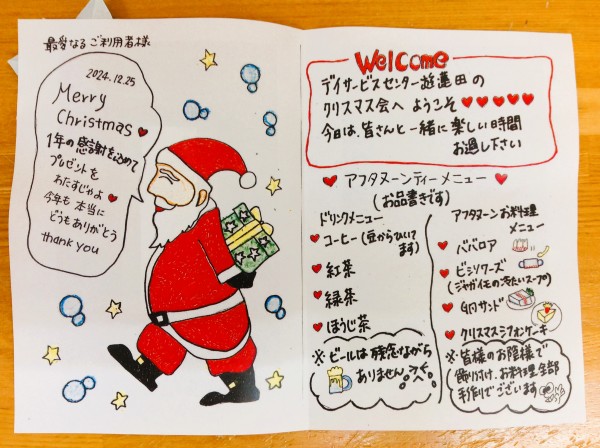 最愛なるご利用者様
2024.12.25
Merry
Christmas
1年の感謝を込めて
プレゼントを
わたすじゃよ
今年も本当に
どうもありがとう
thank you
Welcome
デイサービスセンター遊蓮田の
クリスマス会へ ようこそ♥♥♥♥♥
今日は、皆さんと一緒に楽しい時間
お過し下さい
♥ アフタヌーンティーメニュー ♥
(お品書きです)
ドリンクメニュー
♥ コーヒー(豆からひいて
ます)
♥ 紅茶
♥ 緑茶
♥ ほうじ茶
※ ビールは残念ながら
ありません
アフタヌーンお料理
メニュー
♥ ババロア
♥ ビシソワーズ
(ジャガイモの冷たいスープ)
♥ サンド
♥ クリスマスシフォンケーキ
※ 皆様のお陰様で
飾り付け、お料理全部
手作りでございます